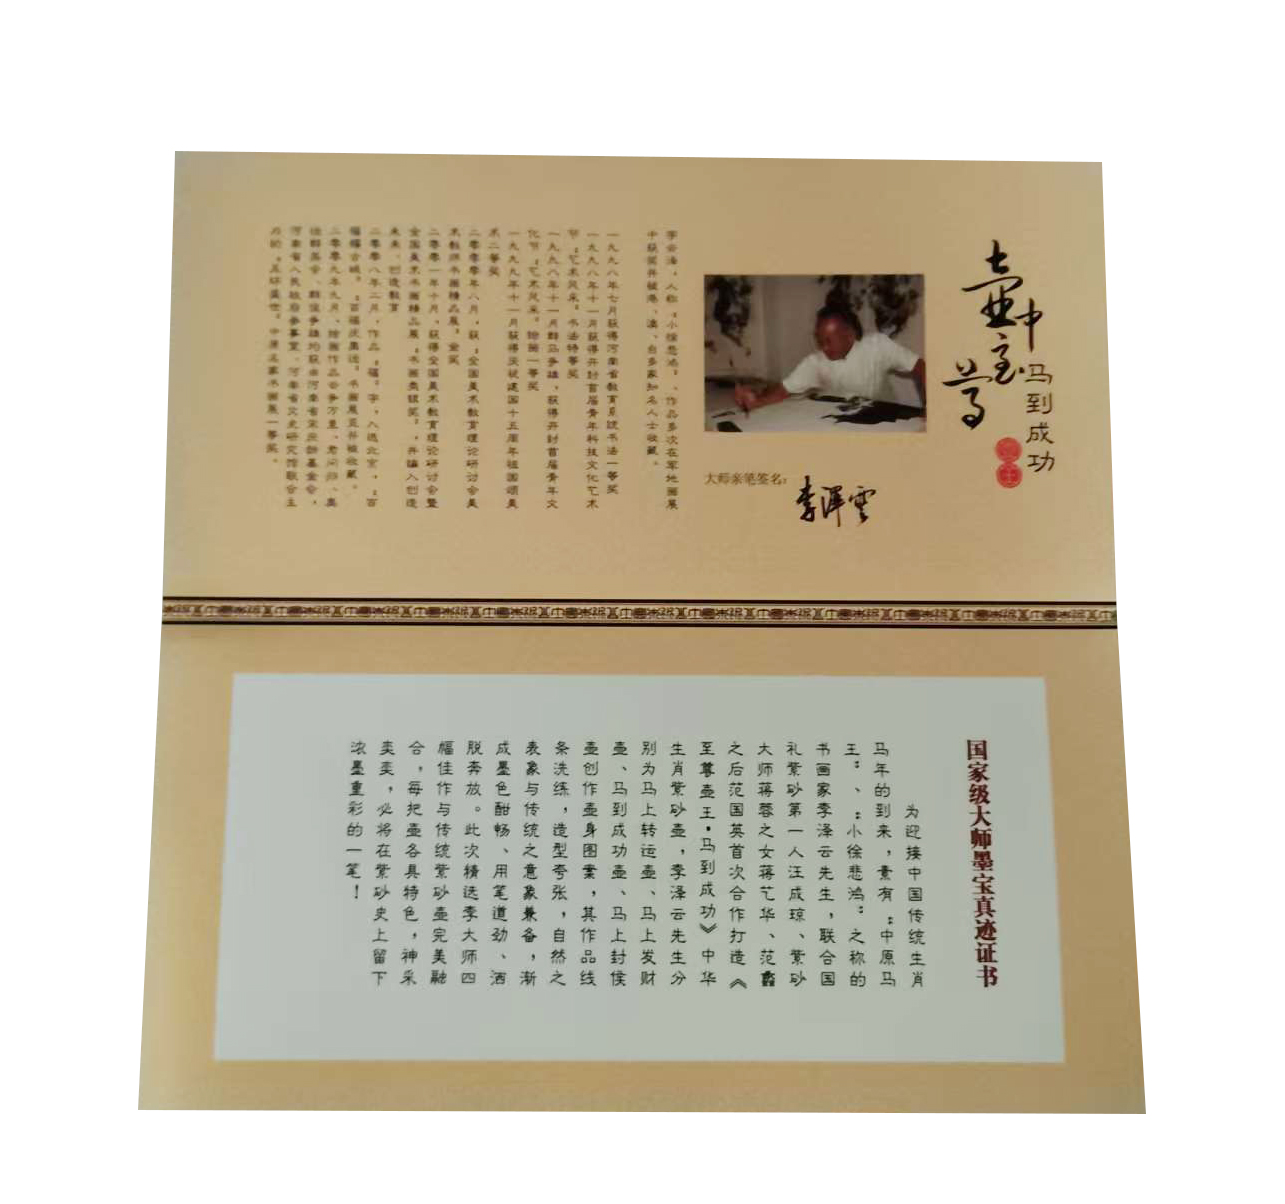 壶中至尊
马到成功
大师亲笔签名：
李泽云
李云泽，人称“小徐悲鸿”、作品多次在军地画展
中获奖并被港、澳、台多家知名人士收藏。
一九九八年七月获得河南省教育系统书法一等奖
一九九八年十一月获得开封首届青年科技文化艺术
节“艺术风采”书法特等奖
一九九八年十一月群马争雄，获得开封首届青年文
化节“艺术风采”绘画一等奖
一九九九年十一月获得庆祝建国十五周年祖国颂美
术二等奖
二零零零年八月，获“全国美术教育理论研讨会美
术教师书画精品展”金奖
二零零一年十月，获得全国美术教育理论研讨会暨
全国美术书画精品展“书画类银奖”，并编入创造
未来、创造教育
二零零八年二月，作品“福”字，入选北京“百
福耀古城”“百福庆奥运”书画展览并被收藏。
二零零九年九月，绘画作品会争万里、君问归、奥
运群英会、群雄争雄均获由河南省宋庆龄基金会，
河南省人民政府参事室、河南省文史研究馆联合主
办的“五环盛世”中原名家书画展一等奖。
国家级大师墨宝真迹证书
为迎接中国传统生肖
马年的到来，素有“中原马
王”、“小徐悲鸿”之称的
书画家李泽云先生，联合国
礼紫砂第一人汪成琼、紫砂
大师蒋蓉之女蒋艺华、范
之后范国英首次合作打造《
至尊壶王·马到成功》中华
生肖紫砂壶，李泽云先生分
别为马上转运壶、马上发财
壶、马到成功壶、马上封侯
壶创作壶身图案，其作品线
条洗练，造型夸张，自然之
表象与传统之意象兼备，渐
成墨色酣畅、用笔遒劲、洒
脱奔放。此次精选李大师四
幅佳作与传统紫砂壶完美融
合，每把壶各具特色，神采
奕奕，必将在紫砂史上留下
浓墨重彩的一笔！